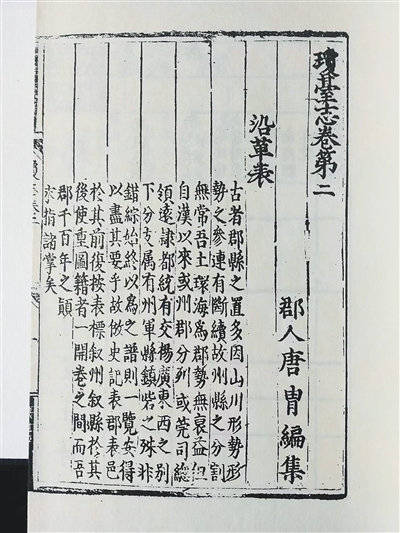 瓊臺志卷第二
郡人唐冑編集
沿革表
古者郡縣之置多因山川形勢形
勢之參連有斷續故州縣之分割
無常吾土環海為郡勢無裒益但
自漢以來或州郡分列或莞司總
領遠隷都統有交楊廣東西之别
下分支属有州軍縣鎮砦之殊非
錯綜始終以為之譜則一覽安得
以盡其要乎故倣史記表郡表邑
於其前復按表標叙州叙縣於其
後使重圖籍者一開卷之間而吾
郡千百年之顛
末指諸掌矣